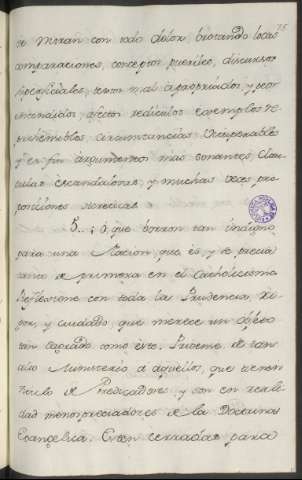 75
se miran con todo dolor brotando locas
comparaciones, conceptos pueriles, discursos
superficiales, textos mal apropriados, y peor
entendidos, afectos rediculos exemplos re-
prehensibles, circunstancias vituperables
y en fin argumentos mas sonantes, clau-
sulas escandalosas, y muchas veces pro-
posiciones hereticas
5..¡ O que borron tan indigno
para una Nacion que es, y se precia
de primera en el Catholicismo
Reflexione con toda la Prudencia,
y cuidado que merece un objeto
tan sagrado como este.
Ministerio à aquellos, que tienen
titulo de Predicadores y son en reali-
dad menospreciadores de la Doctrina
Evangelica. Esten cerradas para